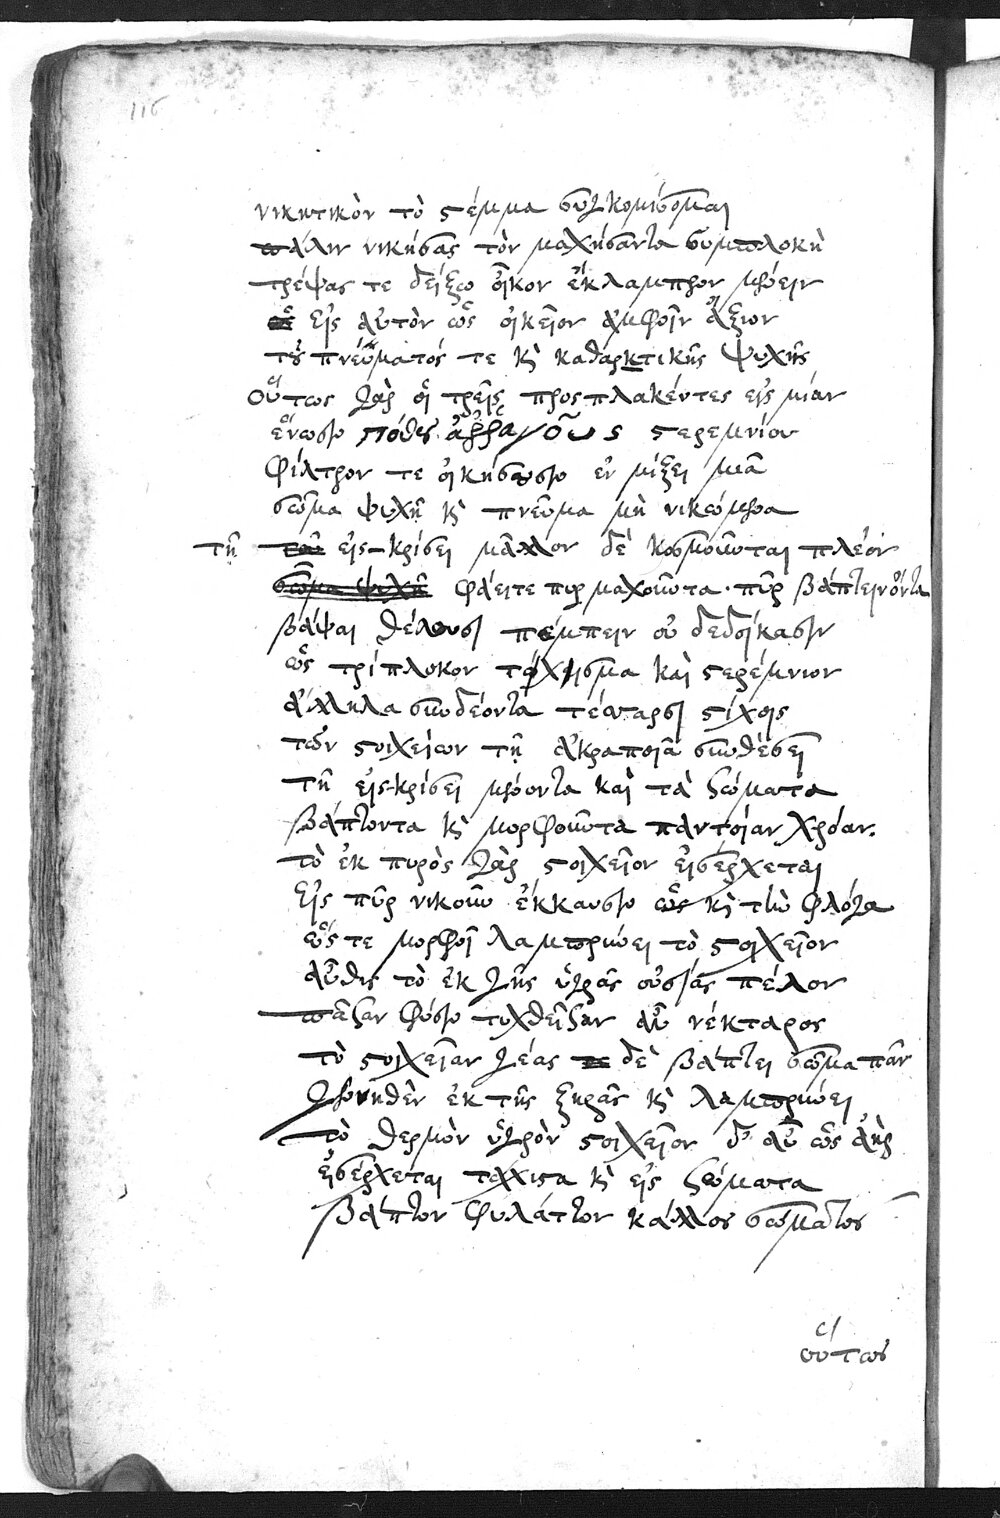 116
νικητικὸν τὸ στέμμα συγκομίσομαι
πάλιν νικήσας τὸν μαχήσαντα συμπλοκῇ
τρέψας τε δείξω οἶκον ἐκλαμπρον μένειν
εἰς αὐτὸν ὡς οἰκεῖον ἀμφοῖν ἄξιον
τοῦ πνεύματός τε καὶ καθαρκτικῆς ψυχῆς
Οὕτως γὰρ οἱ τρεῖς προσπλακέντες εἰς μίαν
ἕνωσιν πόθου ἀρραγοῦς στερεμνίου
φίλτρον τε οἰκήσουσιν ἐν μίξει μιᾷ
σῶμα ψυχὴ καὶ πνεῦμα μὴ νικώμενα
τῇ εἰς-κρίσει μᾶλλον δὲ κοσμοῦνται πλέον
φάειτε πυρμαχοῦντα· πῦρ βάπτειν ὄντα
βάψαι θέλουσι πέμπειν οὐ δεδοίκασιν
ὡς τρίπλοκον καὶ στερέμνιον
ἄλληλα συνδέοντα τέσσαρσι στίχοις
τῶν στοιχείων τῇ ἀκραποιᾷ συνθέσει
τῇ εἰς-κρίσει μένοντα καὶ τὰ σώματα
βάπτοντα καὶ μορφοῦντα παντοίαν χρόαν.
τὸ ἐκ πυρὸς γὰρ στοιχεῖον εἰσέρχεται
εἰς πῦρ νικοῦν ἔκκαυσιν ὡς καὶ τὴν φλόγα
ὥς τε μορφοῖ λαμπρύνει τὸ στοιχεῖον
αὖθις τὸ ἐκ γῆς ὑγρᾶς οὐσίας πέλον
πᾶσαν φύσιν τυχθεῖσαν αὖ νέκταρος
τὸ στοιχεῖαν γέας δὲ βάπτει σῶμα πᾶν
γεννηθὲν ἐκ τῆς ξηρᾶς καὶ λαμπρύνει
τὸ θερμὸν ὑγρὸν στοιχεῖον δ' αὖ ὡς ἀὴρ
εἰσέρχεται τάχιστα καὶ εἰς σώματα
βάπτον φυλάττον κάλλος σώματος
οὕτως